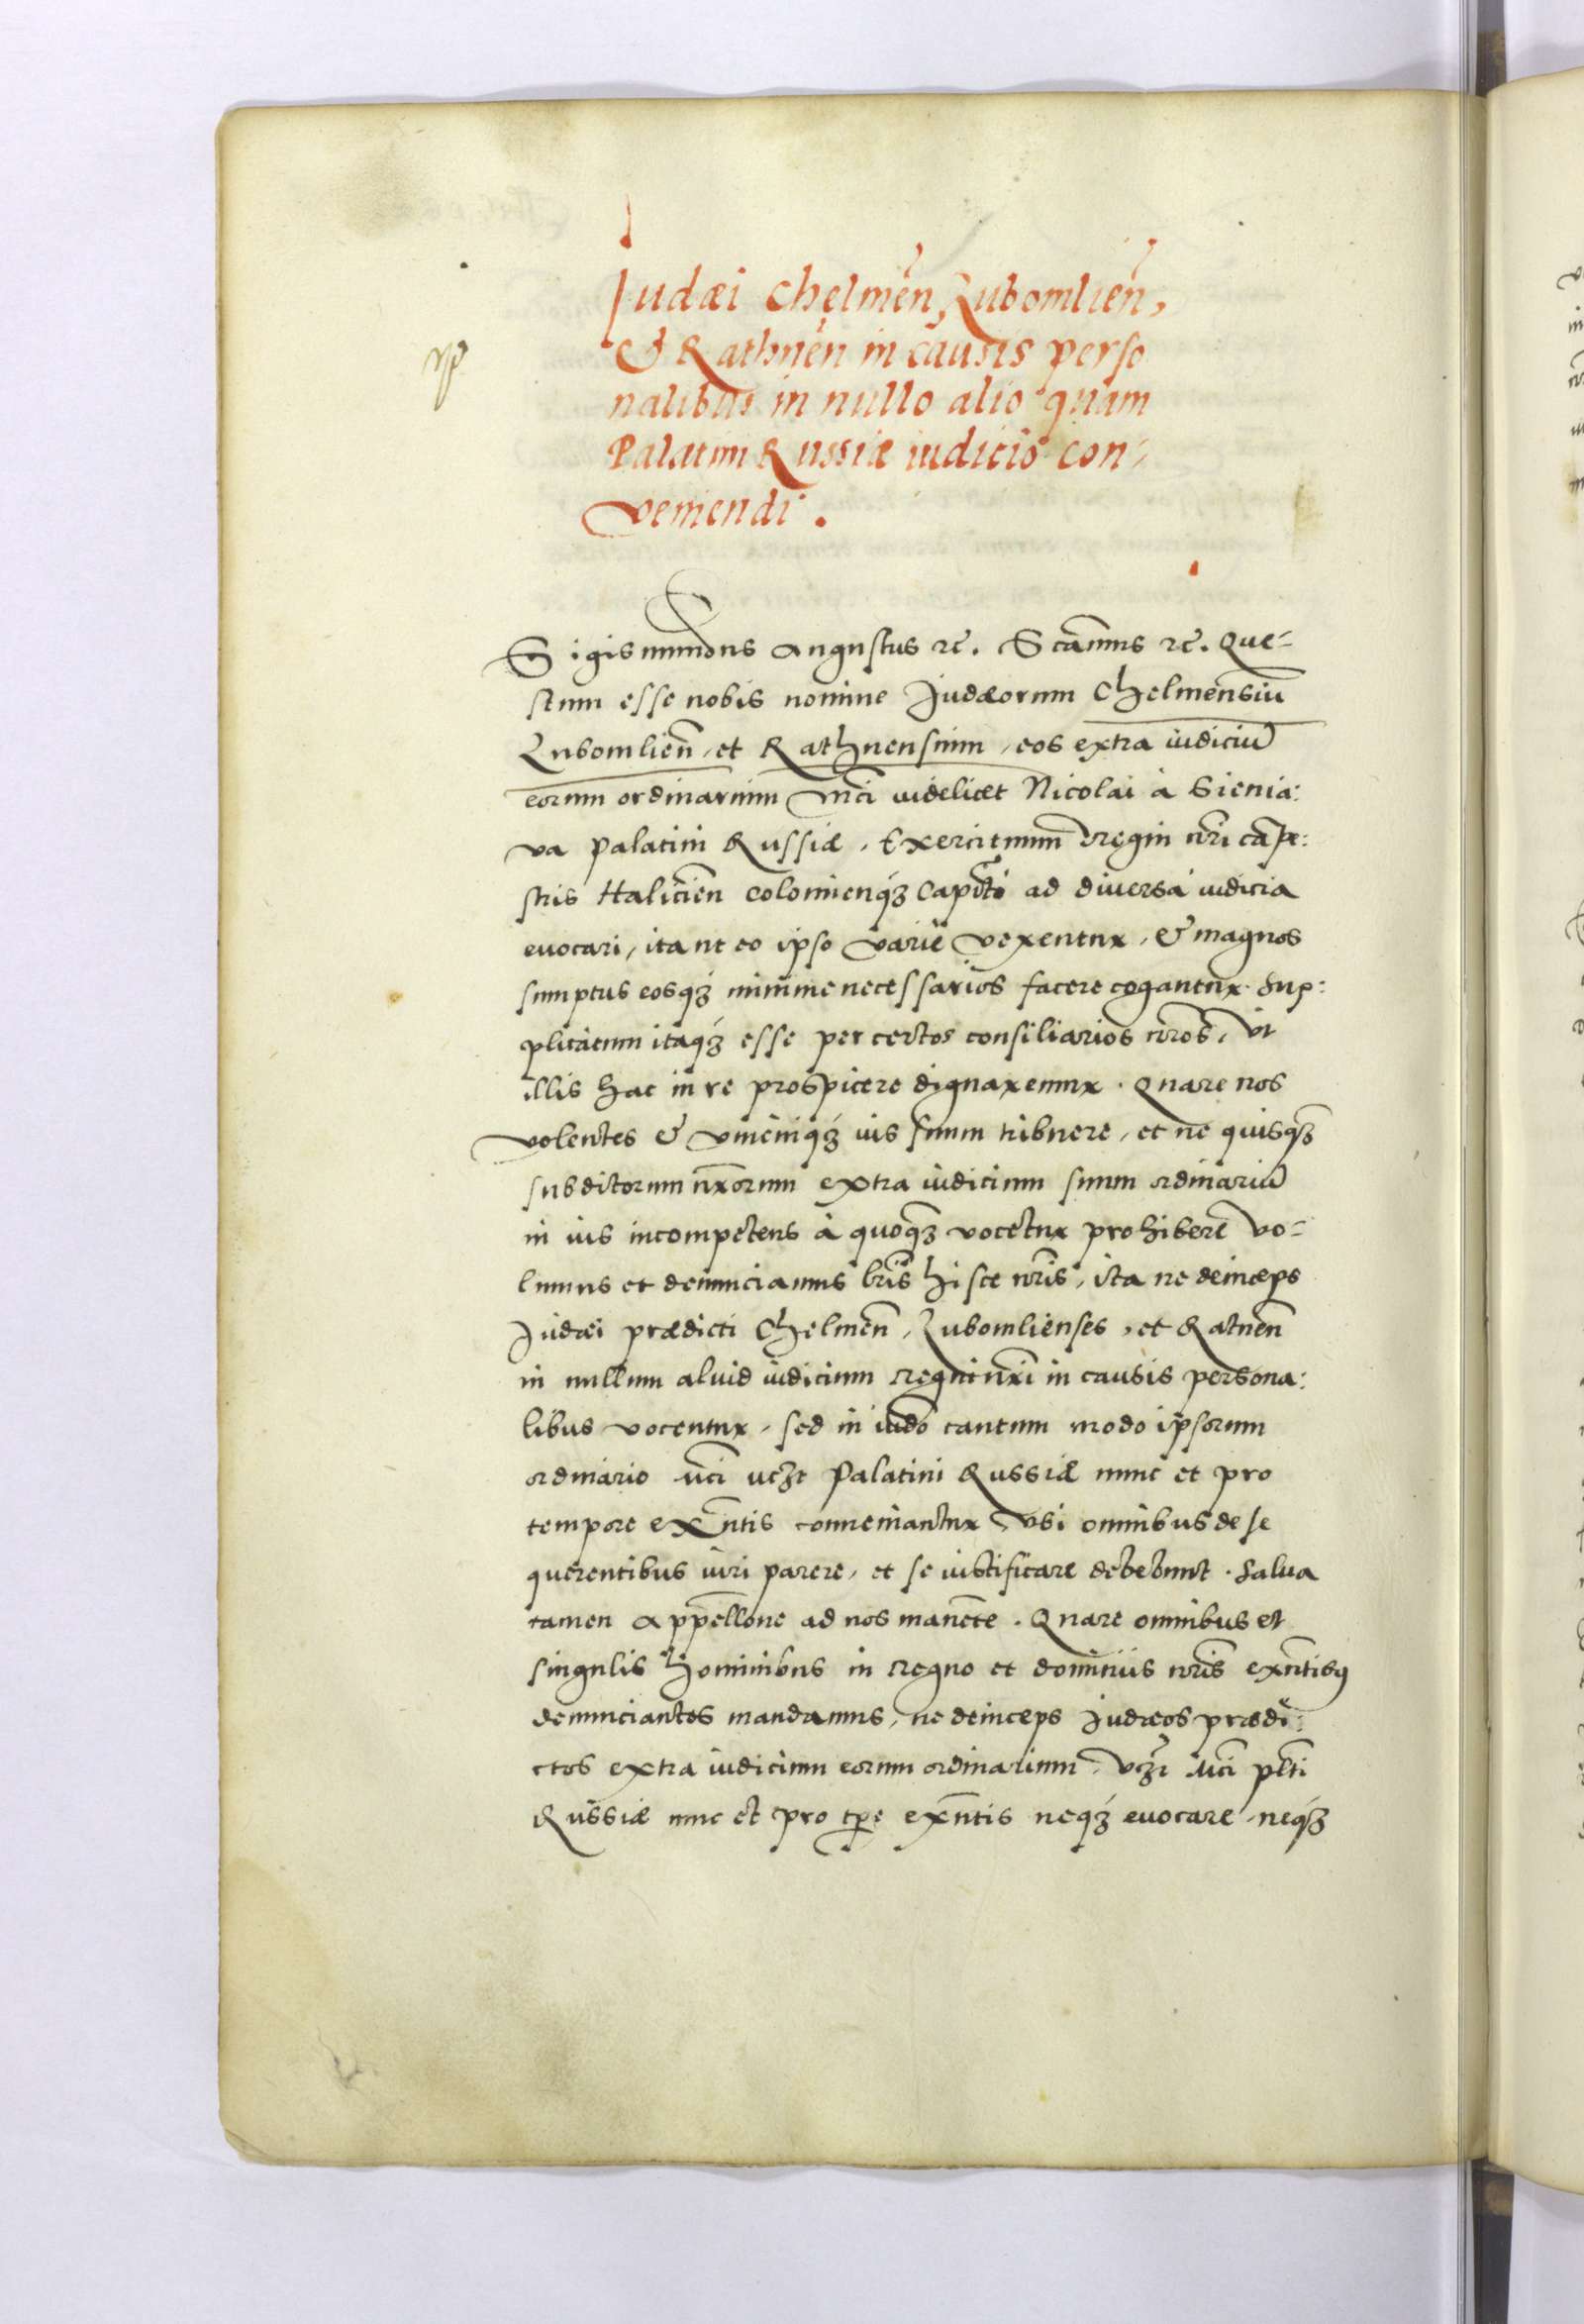 Iudæi Chelmeñ, Lubomlieñ,
& Rathneñ in causis perso
nalibus in nullo alio quam
Palatini Russiæ iudicio con-
veniendi.
Sigismundus Augustus etc. Scimus etc. Que-
stum esse nobis nomine Iudæorum Chelmensiũ
Lubomlieñ, et Rathnensium, eos extra iudiciũ
eorum ordinarium Mci videlicet Nicolai à Sienia:
va Palatini Russiæ, Exercituum Regni nri campe:
stris Halicień Colomienq3 Capitā ad diversa iudicia
evocari, ita ut eo ipso varie vexentur, & magnos
sumptus eosq3 minime necessarios facere cogantur. Sup:
plicatum itaq3 esse per certos consiliarios nros, ut
illis hac in re prospicere dignaremur. Quare nos
volentes & unicuiq3 ius suum tribuere, et ne quisq3
subditorum nrorum extra iudicium suum ordinariũ
in ius incompetens à quoq3 vocetur prohibere vo-
lumus et denunciamus lris hisce nris, ita ne deinceps
Iudæi prædicti Chelmeñ, Lubomlienses, et Ratneñ
in nullum aliud iudicium Regni nri in causis persona:
libus vocentur, sed in iudō tantum modo ipsorum
ordinario Mci vczt Palatini Russiæ nunc et pro
tempore exñtis conveniantur, ubi omnibus de se
querentibus iuri parere, et se iustificare debebunt. Salva
tamen appellōne ad nos manente. Quare omnibus et
singulis hominibus in Regno et dominiis nris exñtibus
denunciantes mandamus, ne deinceps Iudæos prædi:
ctos extra iudicium eorum ordinarium, vczt Mci plti
Russiæ nunc et pro tpre exñtis neq3 evocare, neq3